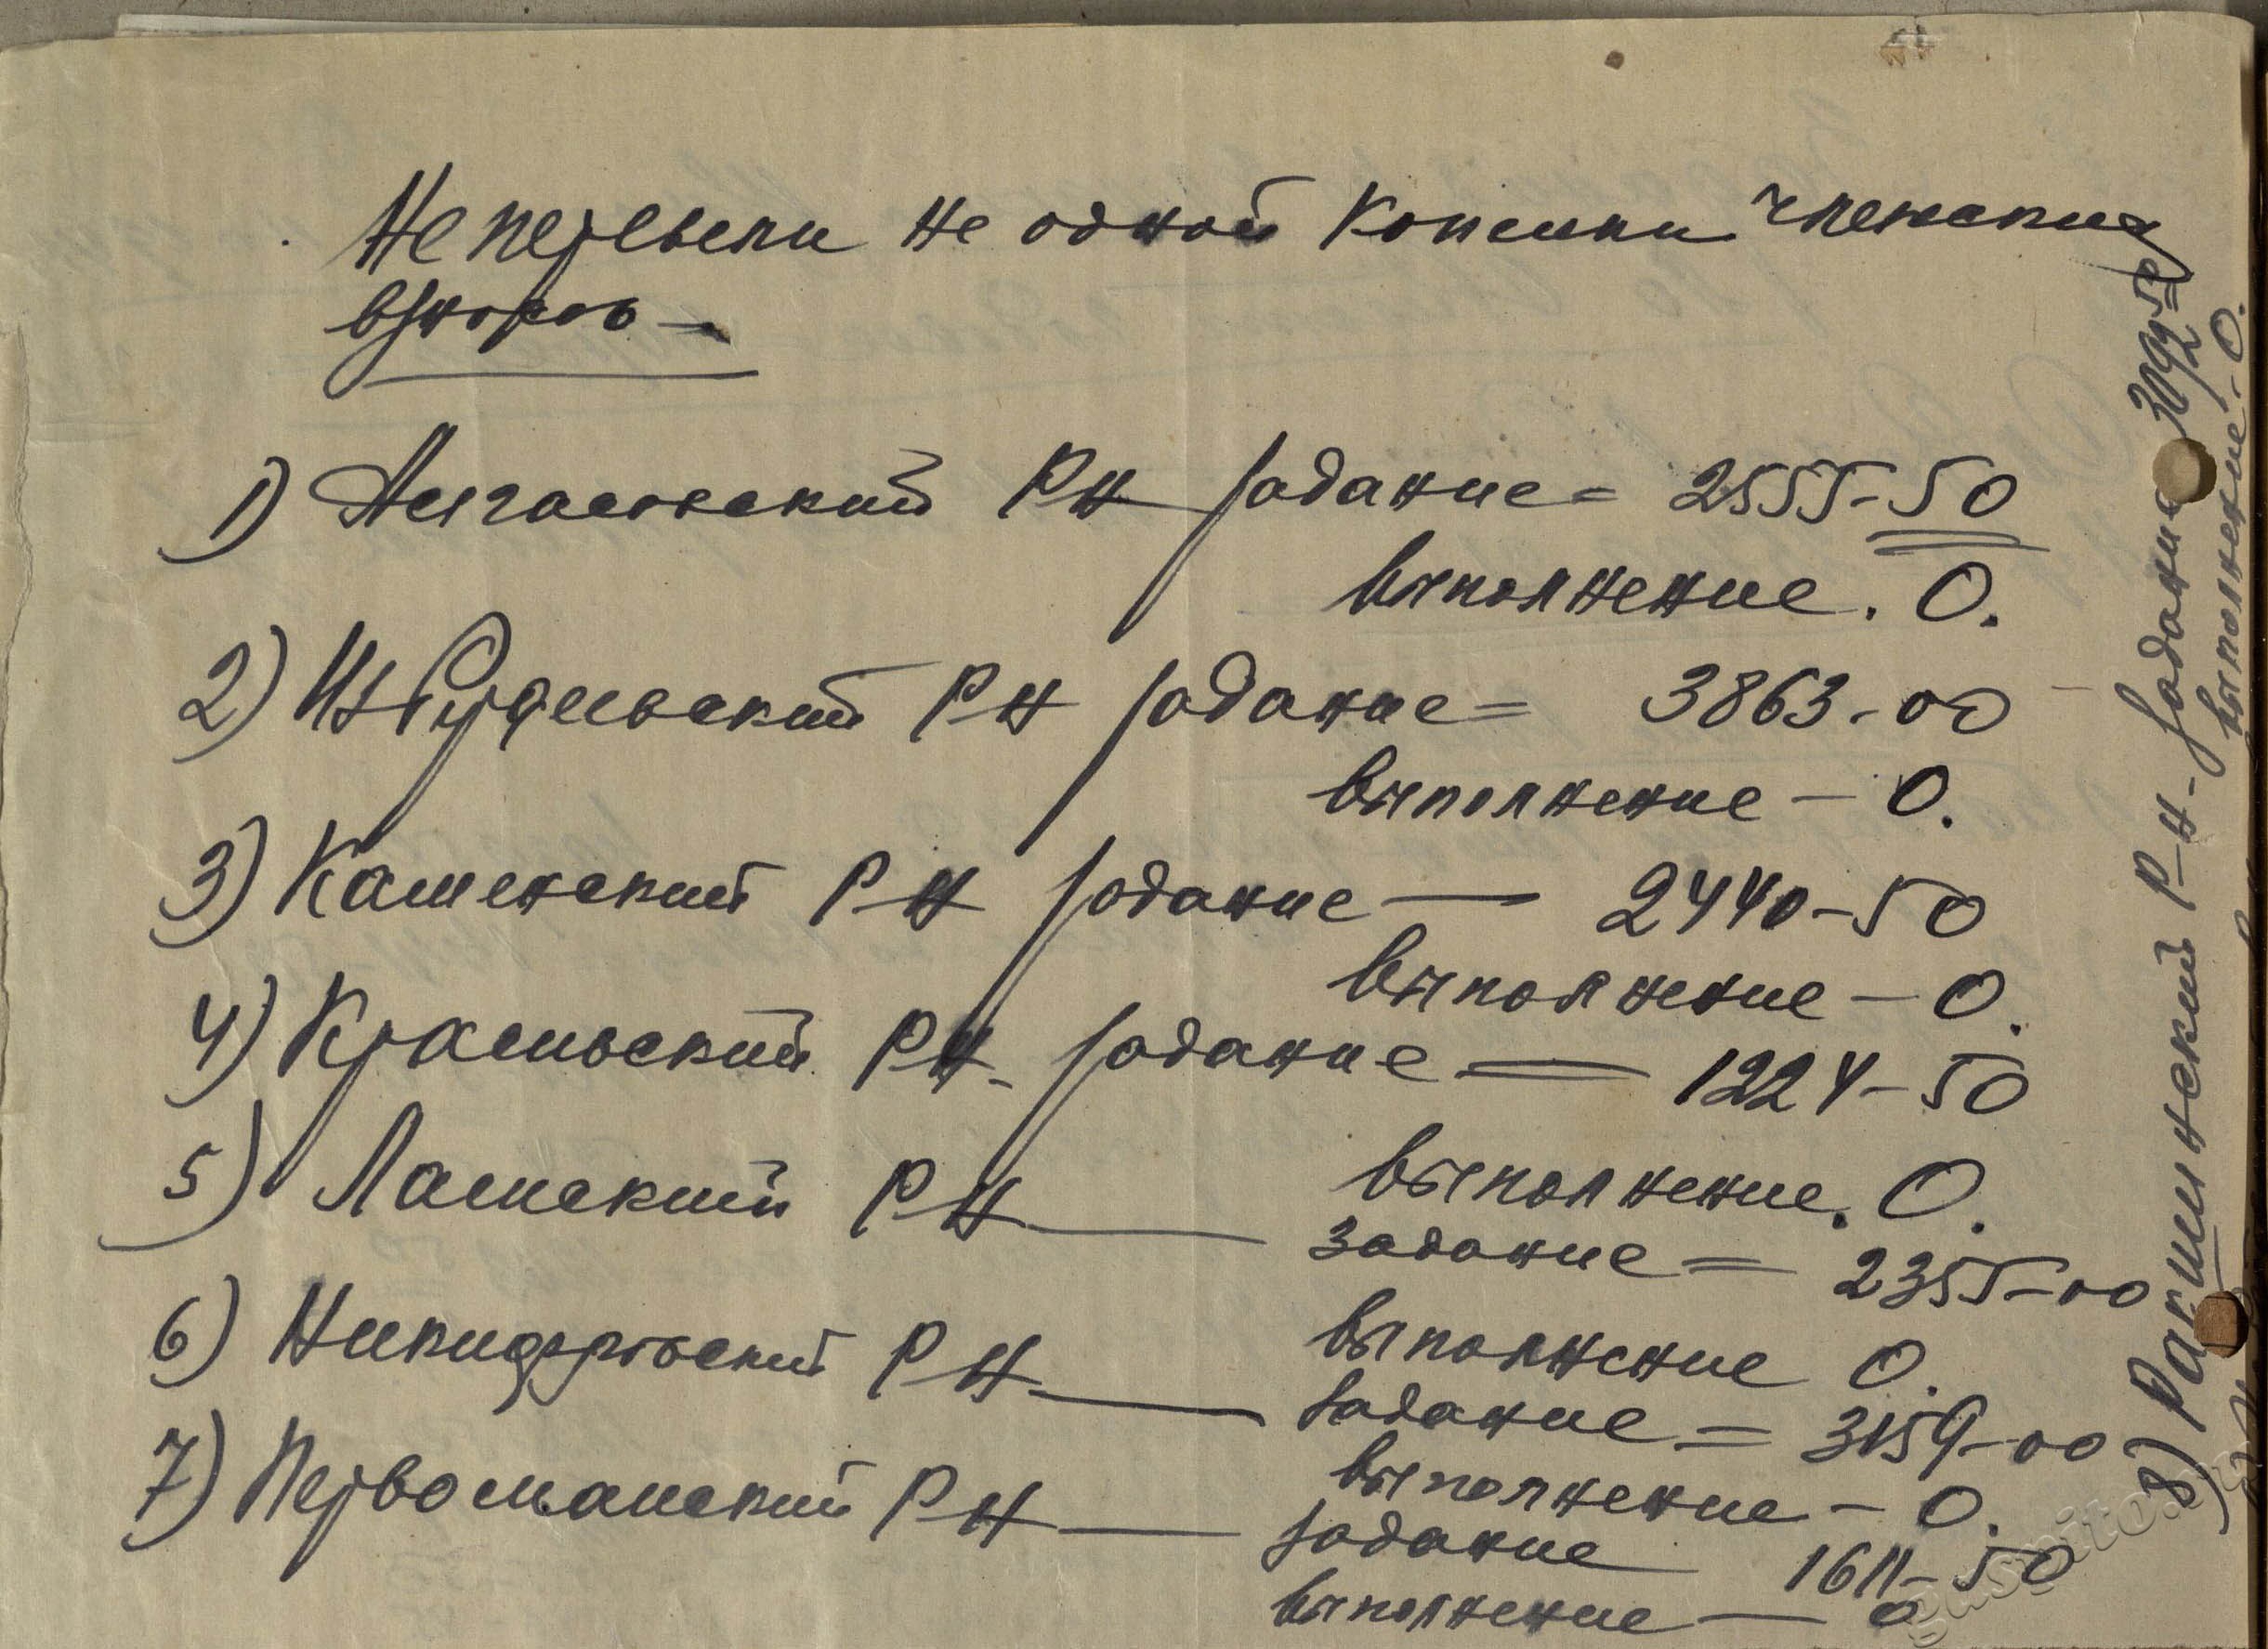 Не перевели не одной копейки членских
взносов —
1) Алгасовский РН задание = 2555-50
выполнение. 0.
2) Избердеевский РН задание = 3863-00
выполнение — 0.
3) Каменский РН задание — 2440-50
выполнение — 0.
4) Красивский РН. задание — 1224-50
выполнение. 0.
5) Ламский РН —
задание = 2355-00
выполнение 0.
6) Никифоровский РН —
задание = 3159-00
выполнение — 0.
7) Первомайский РН —
задание 1611-50
выполнение — 0
8) Ракшинский Р-Н - задание 3092 50
выполнение - 0.